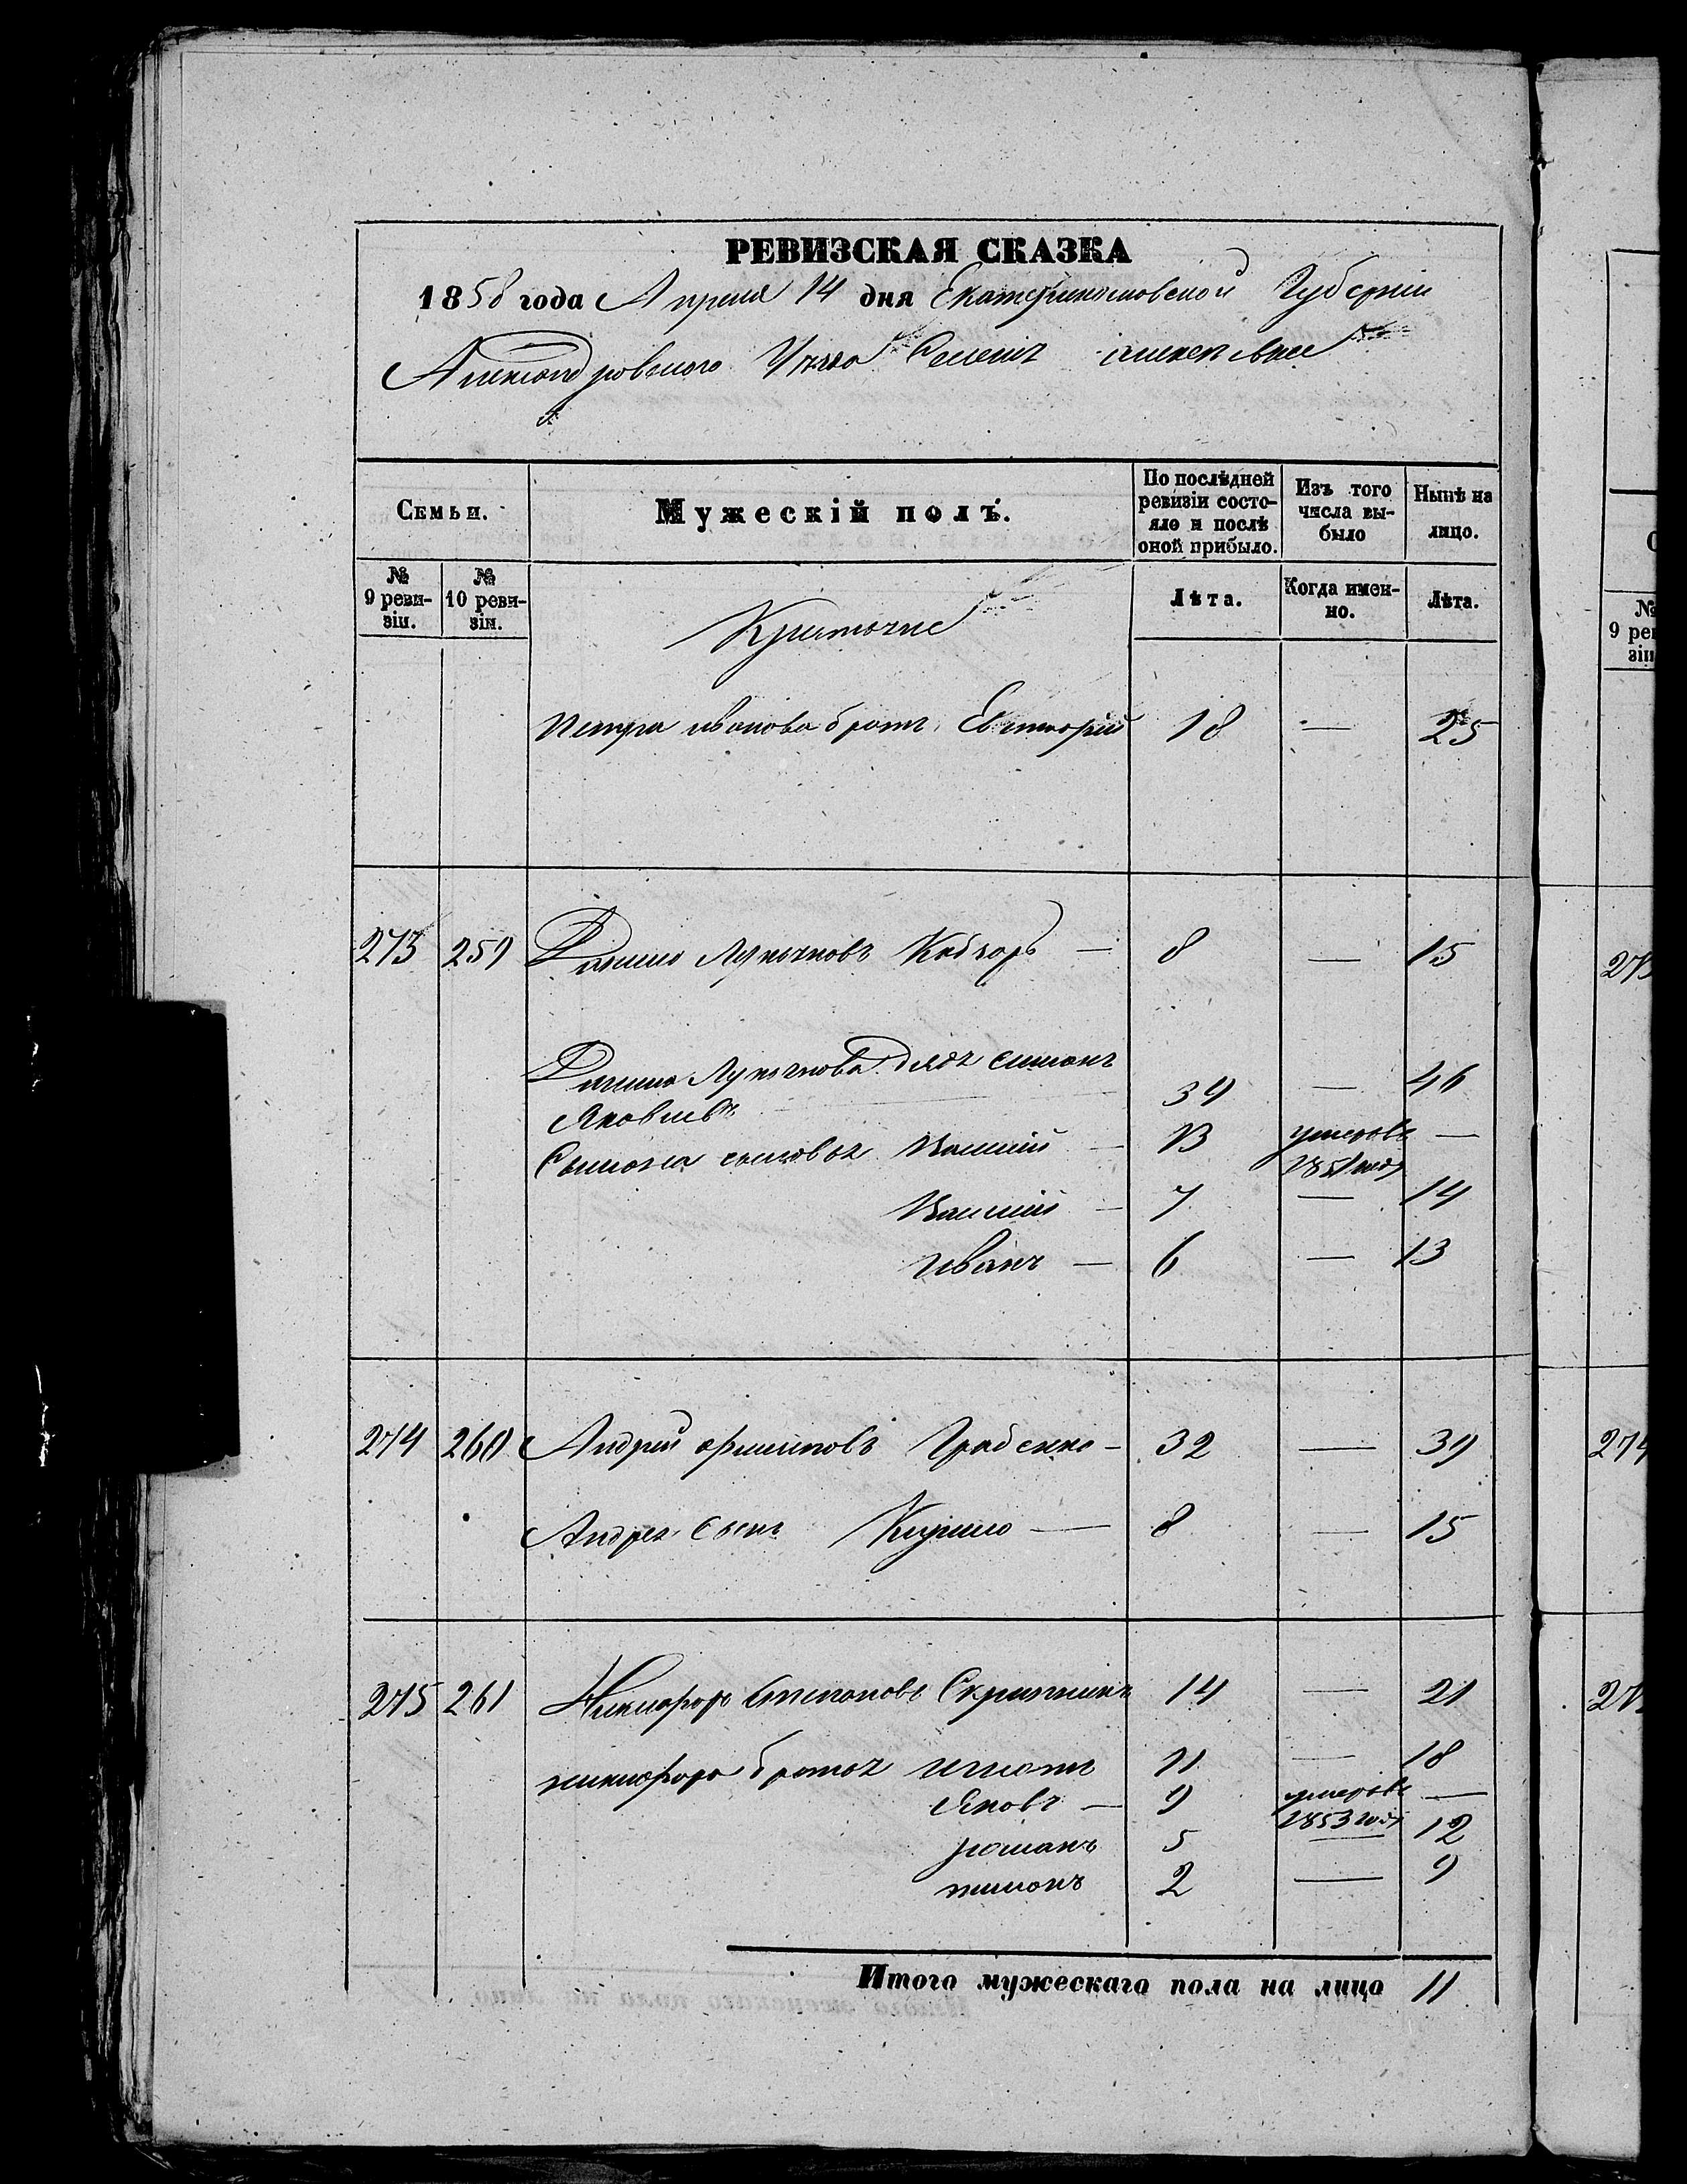 РЕВИЗСКАЯ СКАЗКА
1858 года Апреля 14 дня Екатеринославской Губерніи
Александровского Уезда
Семьи. Мужескій полъ. По послѣдней ревизіи состояло и послѣ оной прибыло. Изъ того числа выбыло Нынѣ на лицо.
№ 9 ревизіи. № 10 ревизіи. Лѣта. Когда именно. Лѣта.
Петра иванова братъ 18 — 25
273 259 Данило Кобзарь — 8 — 15
Данила дядя Симонъ
Яковлевъ 39 — 46
Симона сыновья Василій — 13 умеръ 1851 году —
Василій — 7 — 14
Иванъ — 6 — 13
274 260 Андрей Грабенко — 32 — 39
Андрея Сынъ Кирило — 8 — 15
275 261 Никифоръ Степановъ 14 — 21
никифора братья игнатъ 11 — 18
Яковъ — 9 умеръ 1853 году —
романъ 5 — 12
тимонъ 2 — 9
Итого мужескаго пола на лицо 11
2
9 ре
зіи
274